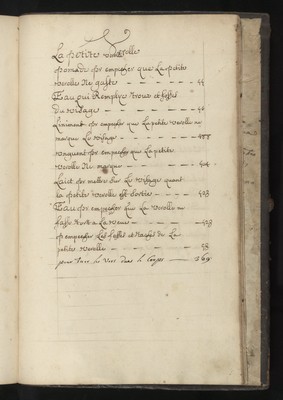 La petite verolle
pomade pr empecher que La petite
verolle Ne gaste — — — 44
Eau qui Remplye trous et fosses
du visage — — — — 46
Liniment pr empecher que La petite verolle ne
marque Le visage — — — 488
onguent pr empecher que La petite
verolle Ne marque — — — 404
Laict pr mettre sur Le visage quant
La petite verolle est sortie — — 403
Eau pr empecher que La verolle ne
fasse a La veue — — — 403
pr empecher Les fosses et de La
petite verolle — — — — 58
pour les dans le Corps — 369